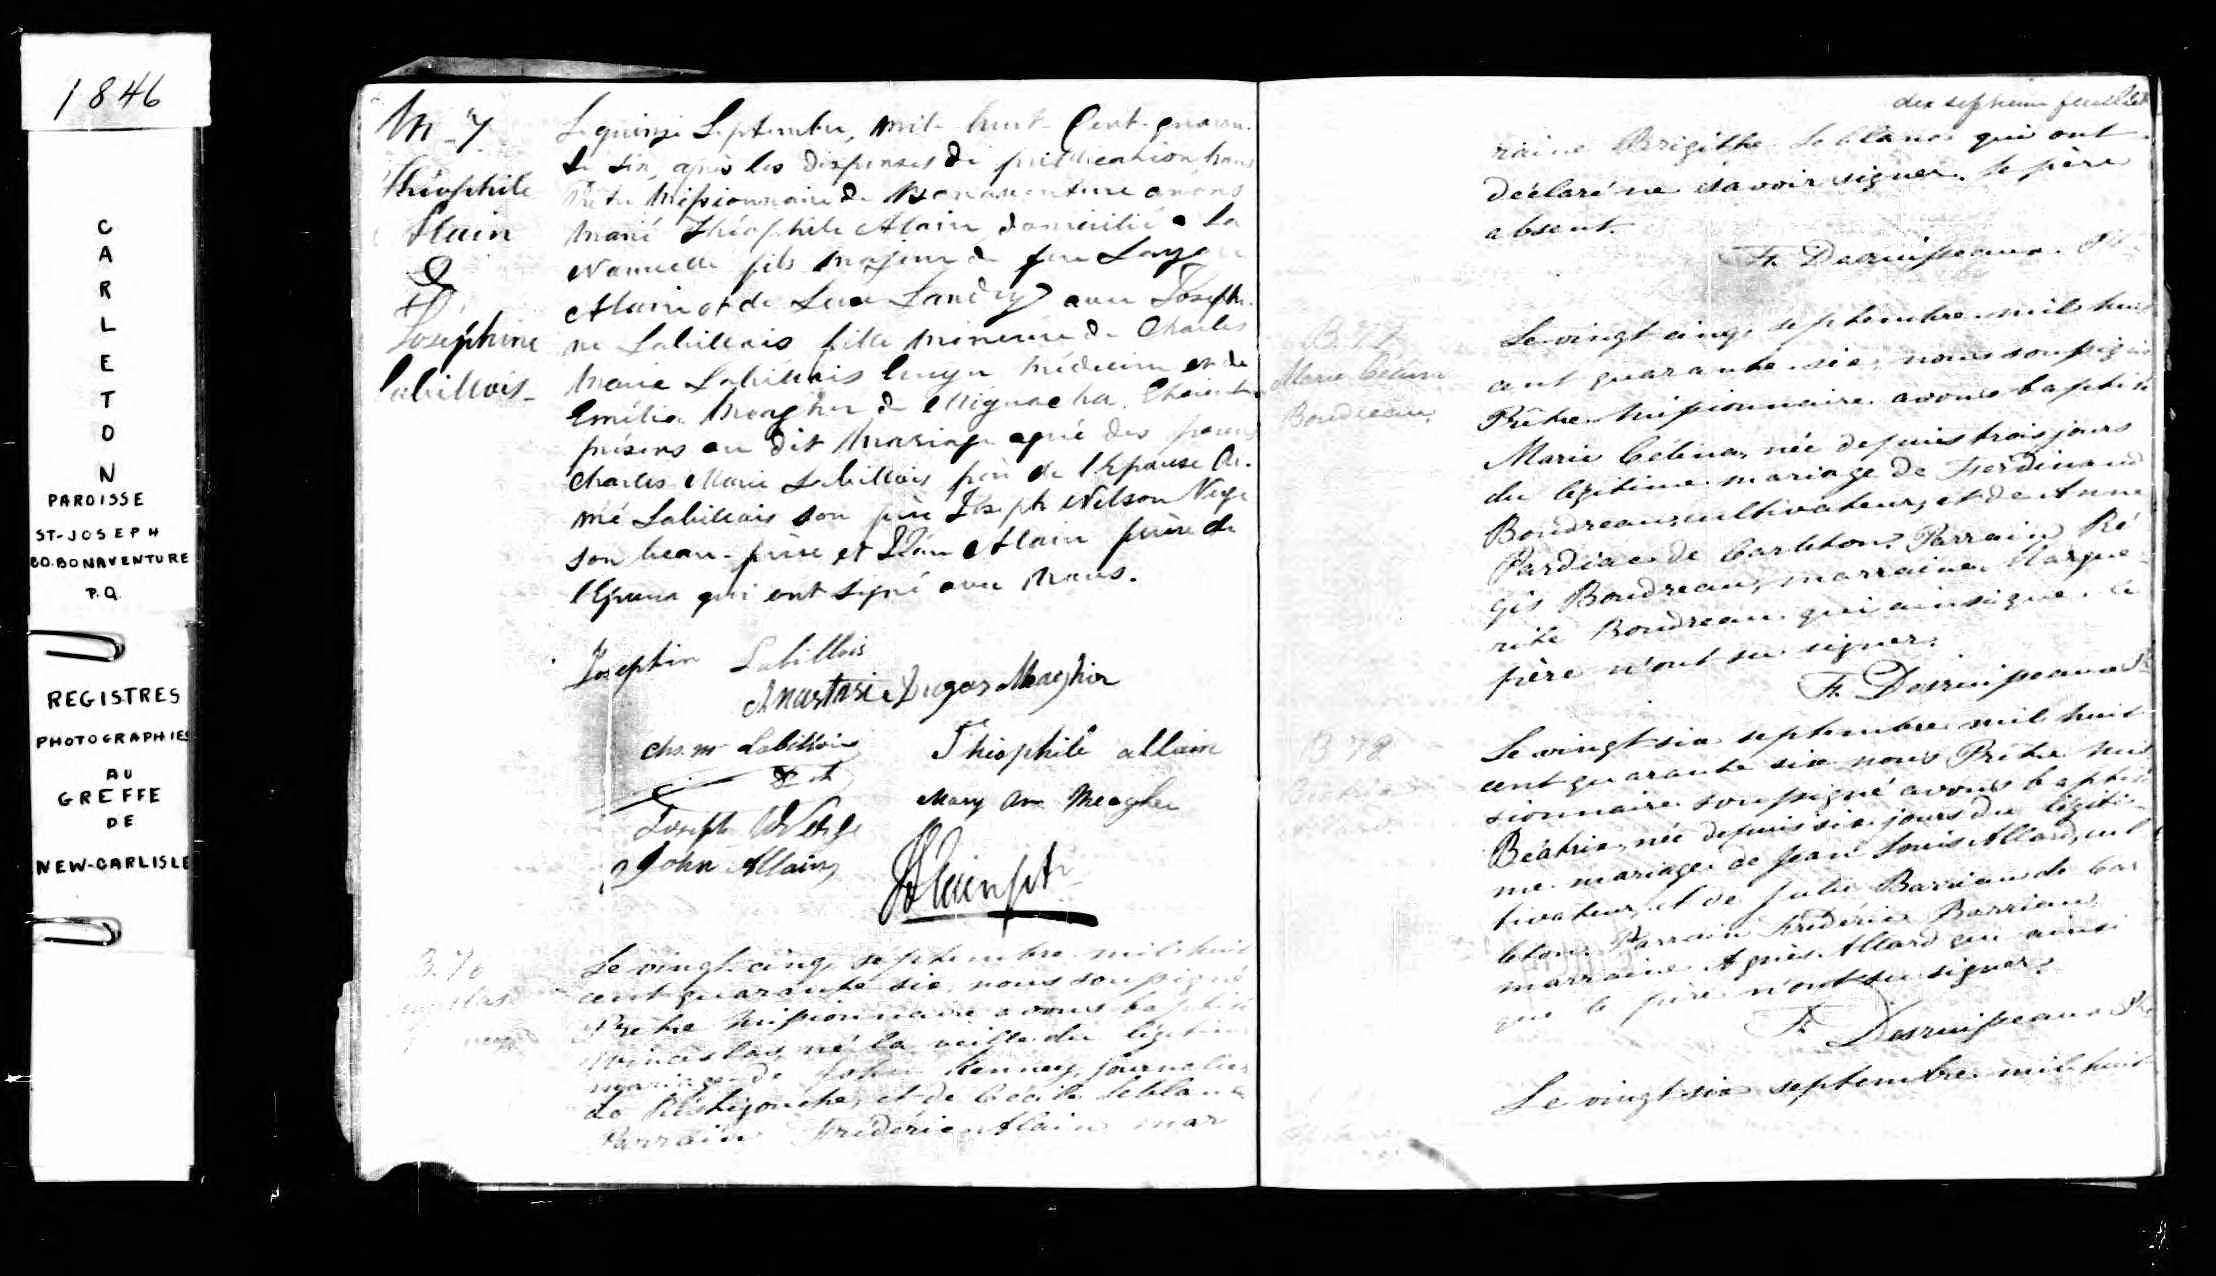 1846
CARLETON
PAROISSE
ST-JOSEPH
CO. BONAVENTURE
P.Q.
REGISTRES
PHOTOGRAPHIES
AU
GREFFE
DE
NEW-CARLISLE
M-7
Théophile
Alain
&
Joséphine
Labillois
Le quinze Septembre, mil huit Cent quaran-
te six, après les dispenses de publication nous
Ptre Missionnaire de Bonaventure avons
marié Théophile Alain domicilié à la
fils majeur de feu
Alain et de Landry avec Joséphi-
ne Labillois fille mineure de Charles
Marie Labillois Ecuyer Médecin et de
Emélie Meagher de Miguacha. Etaient
présens au dit mariage
Charles Marie Labillois père de l'Epouse
mé Labillois son frère Joseph Nelson Verge
son beau-frère et Jean Alain frère de
l'Epoux qui ont signé avec nous.
Josephin Labillois
Anastasie Dugas Meagher
Chs. M Labillois
Théophile allain
Joseph W Verge
Mary An Meagher
John Allain
Alain ptr
B. 76
Le vingt cinq septembre mil huit
cent quarante six, nous soussigné
Prêtre Missionnaire avons baptisé
Winceslas, né la veille du légitime
mariage de John Kenney, journalier
de Ristigouche, et de Cécile Leblanc
Parrain Frédéric Alain mar
dix septième feuillet
raine Brigithe Leblanc qui ont
déclaré ne savoir signer. le père
absent.
Fr. Desruisseaux Ptr
B. 77
Marie Célina
Boudreau
Le vingt cinq septembre mil huit
cent quarante six, nous soussigné
Prêtre Missionnaire avons baptisé
Marie Célina, née depuis trois jours
du légitime mariage de Ferdinand
Boudreau, cultivateur, et de Anne
de Carleton. Parrain Ré
gis Boudreau, marraine Margue-
rite Boudreau qui ainsi que le
père n'ont su signer.
Fr. Desruisseaux Ptr
B 78
Le vingt six septembre mil huit
cent quarante six nous Prêtre Mis
sionnaire soussigné avons baptisé
Béatrix, née depuis six jours du légiti-
me mariage de Jean Louis Allard, cul
tivateur, et de Julie Barriau de Car
leton. Parrain Frédéric Barriau
marraine Agnès Allard qui ainsi
que le père n'ont su signer.
Fr Desruisseaux Ptr
Le vingt six septembre mil huit